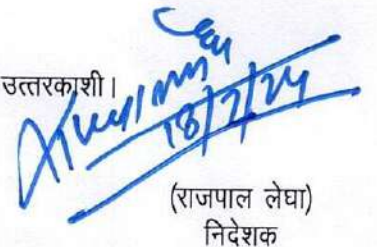 उत्तरकाशी।
18/7/24
(राजपाल लेघा)
निदेशक